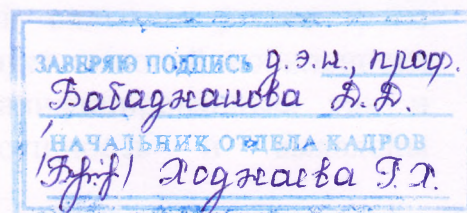 ЗАВЕРЯЮ ПОДПИСЬ д.э.н., проф.
Бабаджанова Д.Д.
НАЧАЛЬНИК ОТДЕЛА КАДРОВ
Ходжаева Г.Х.